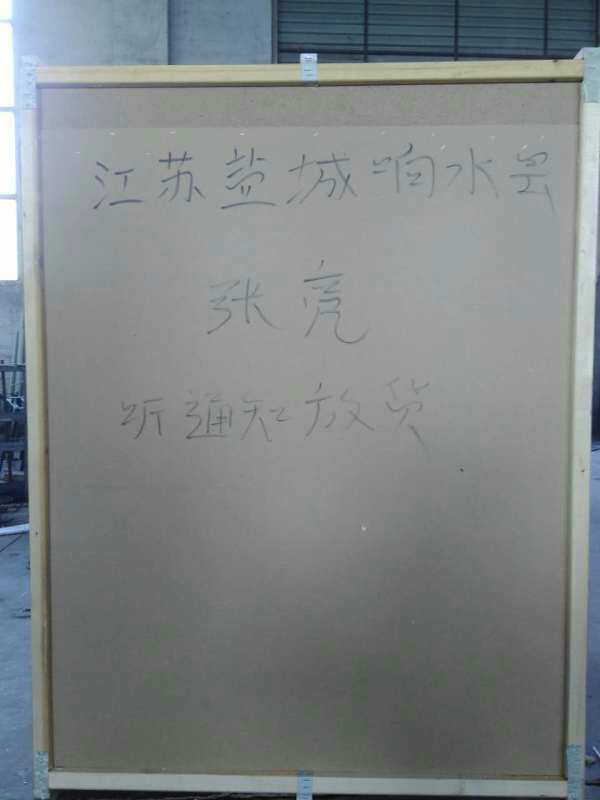 江苏盐城响水县
张亮
听通知放货